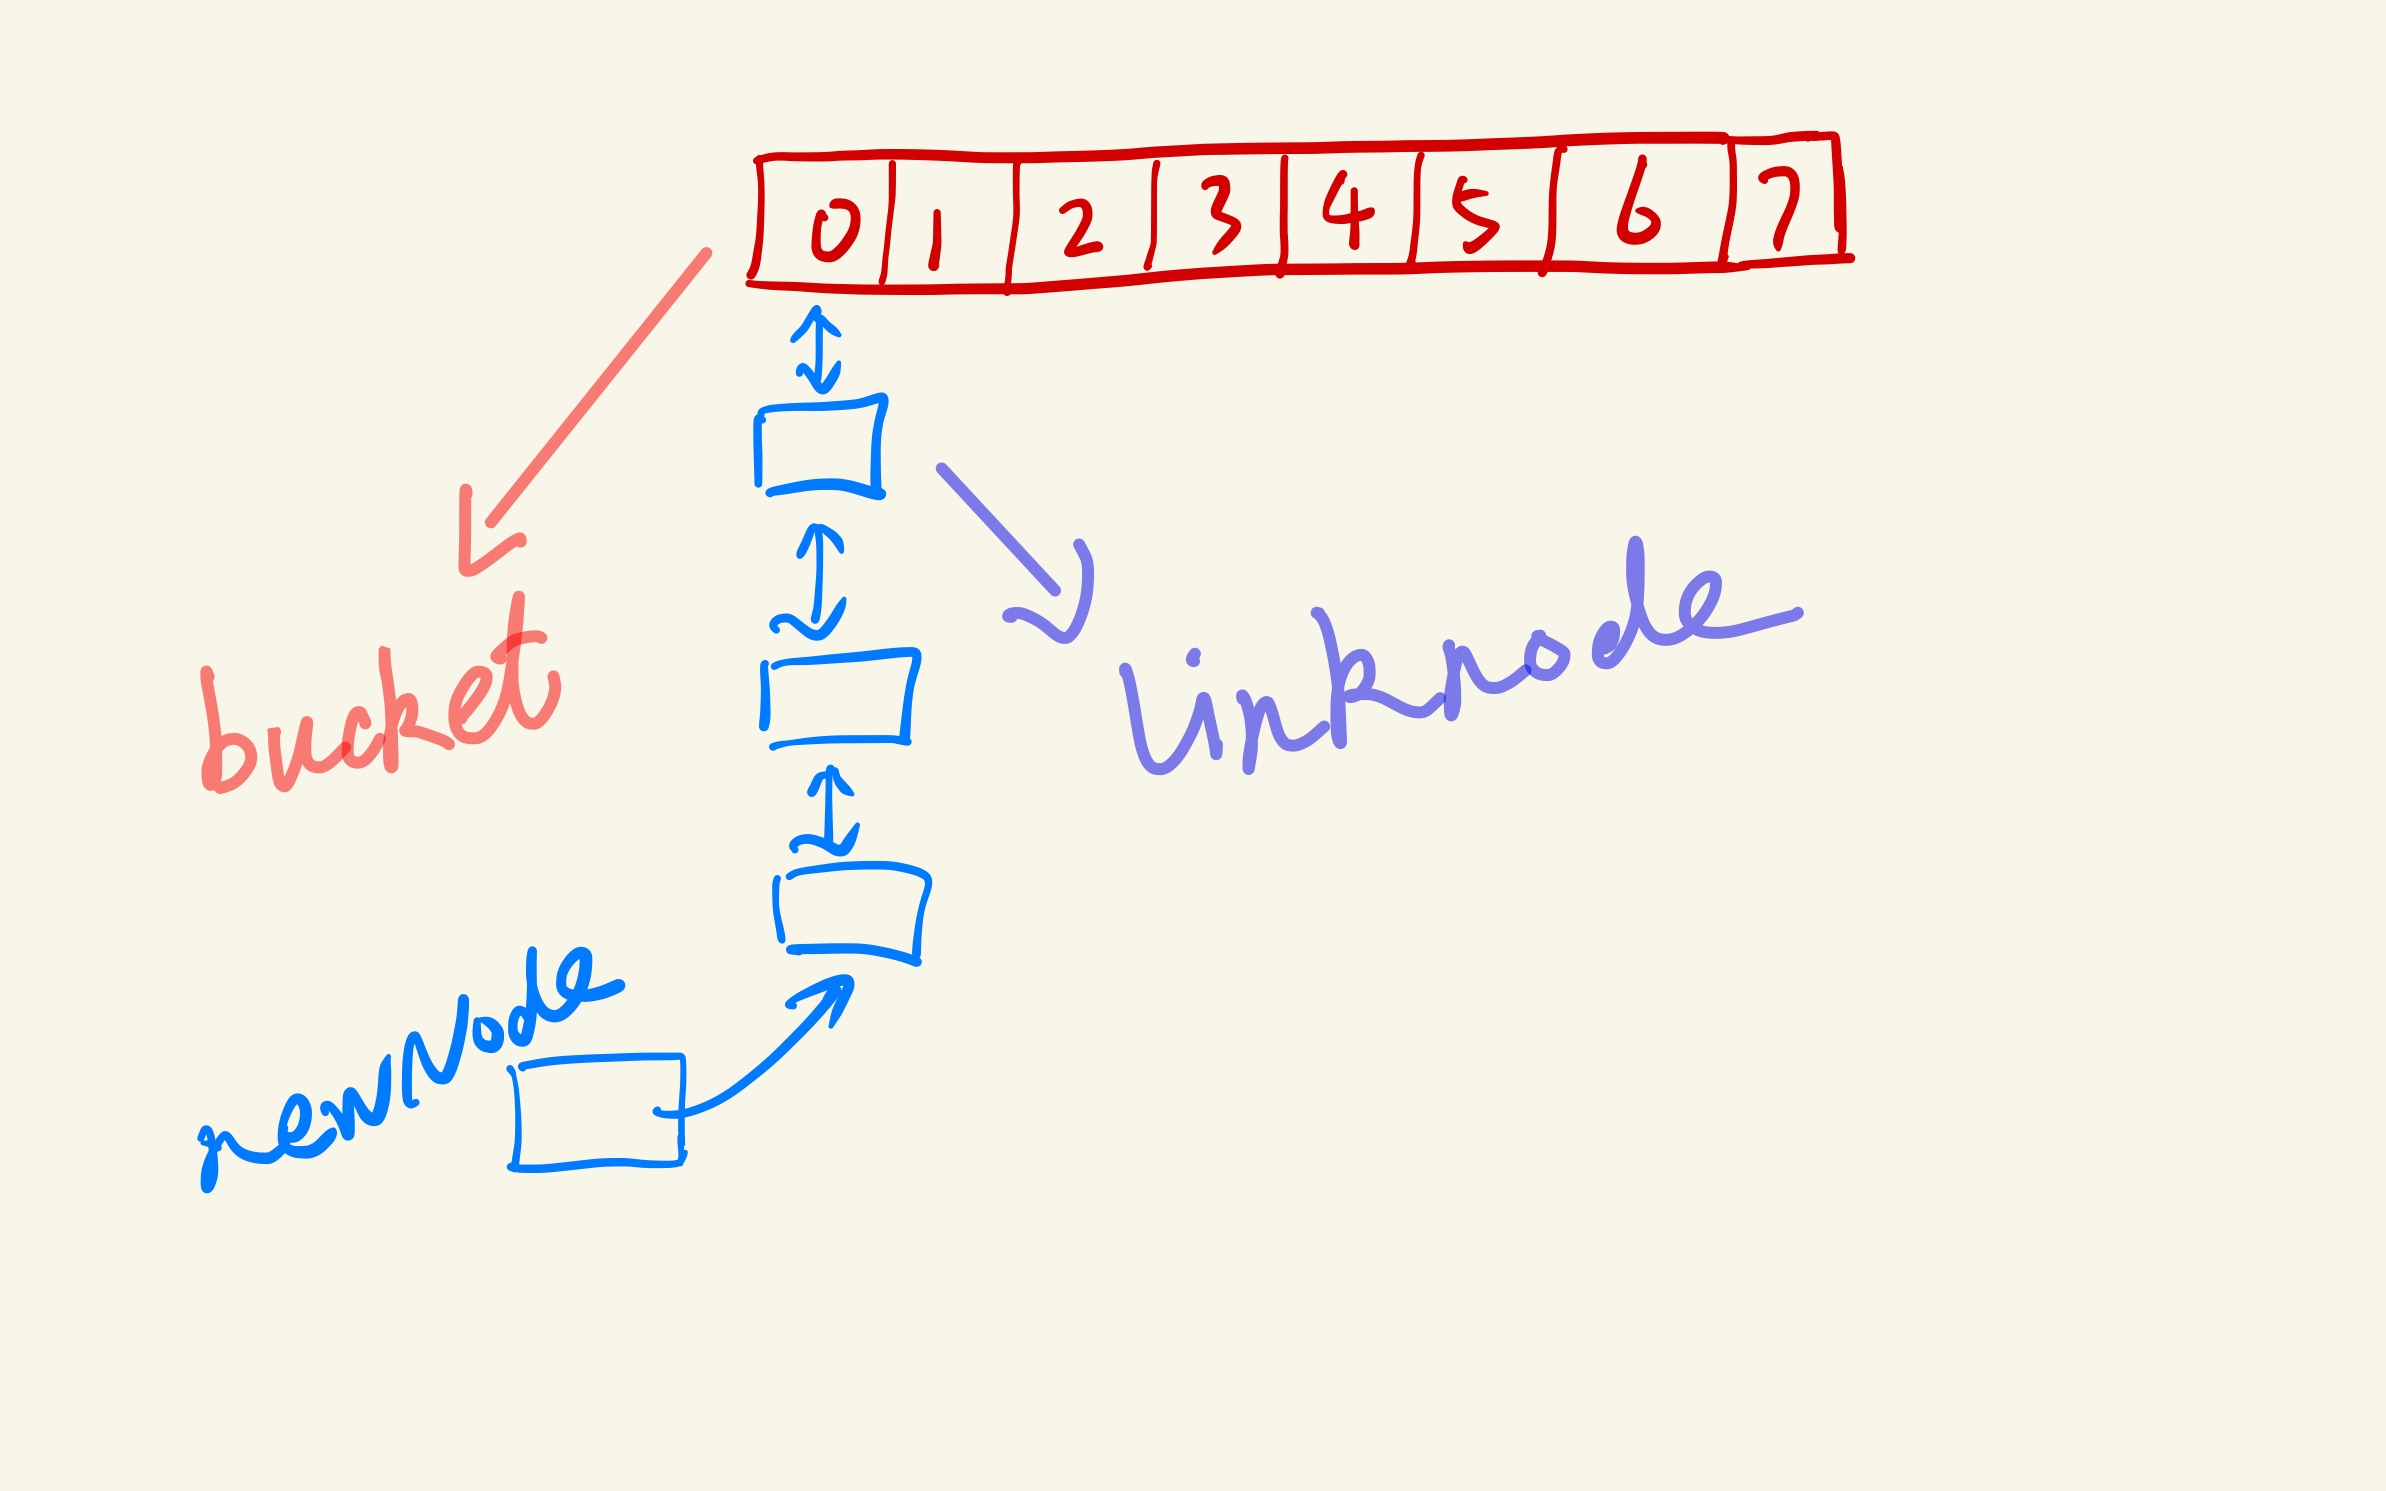 0 1 2 3 4 5 6 7
bucket
linknode
newNode